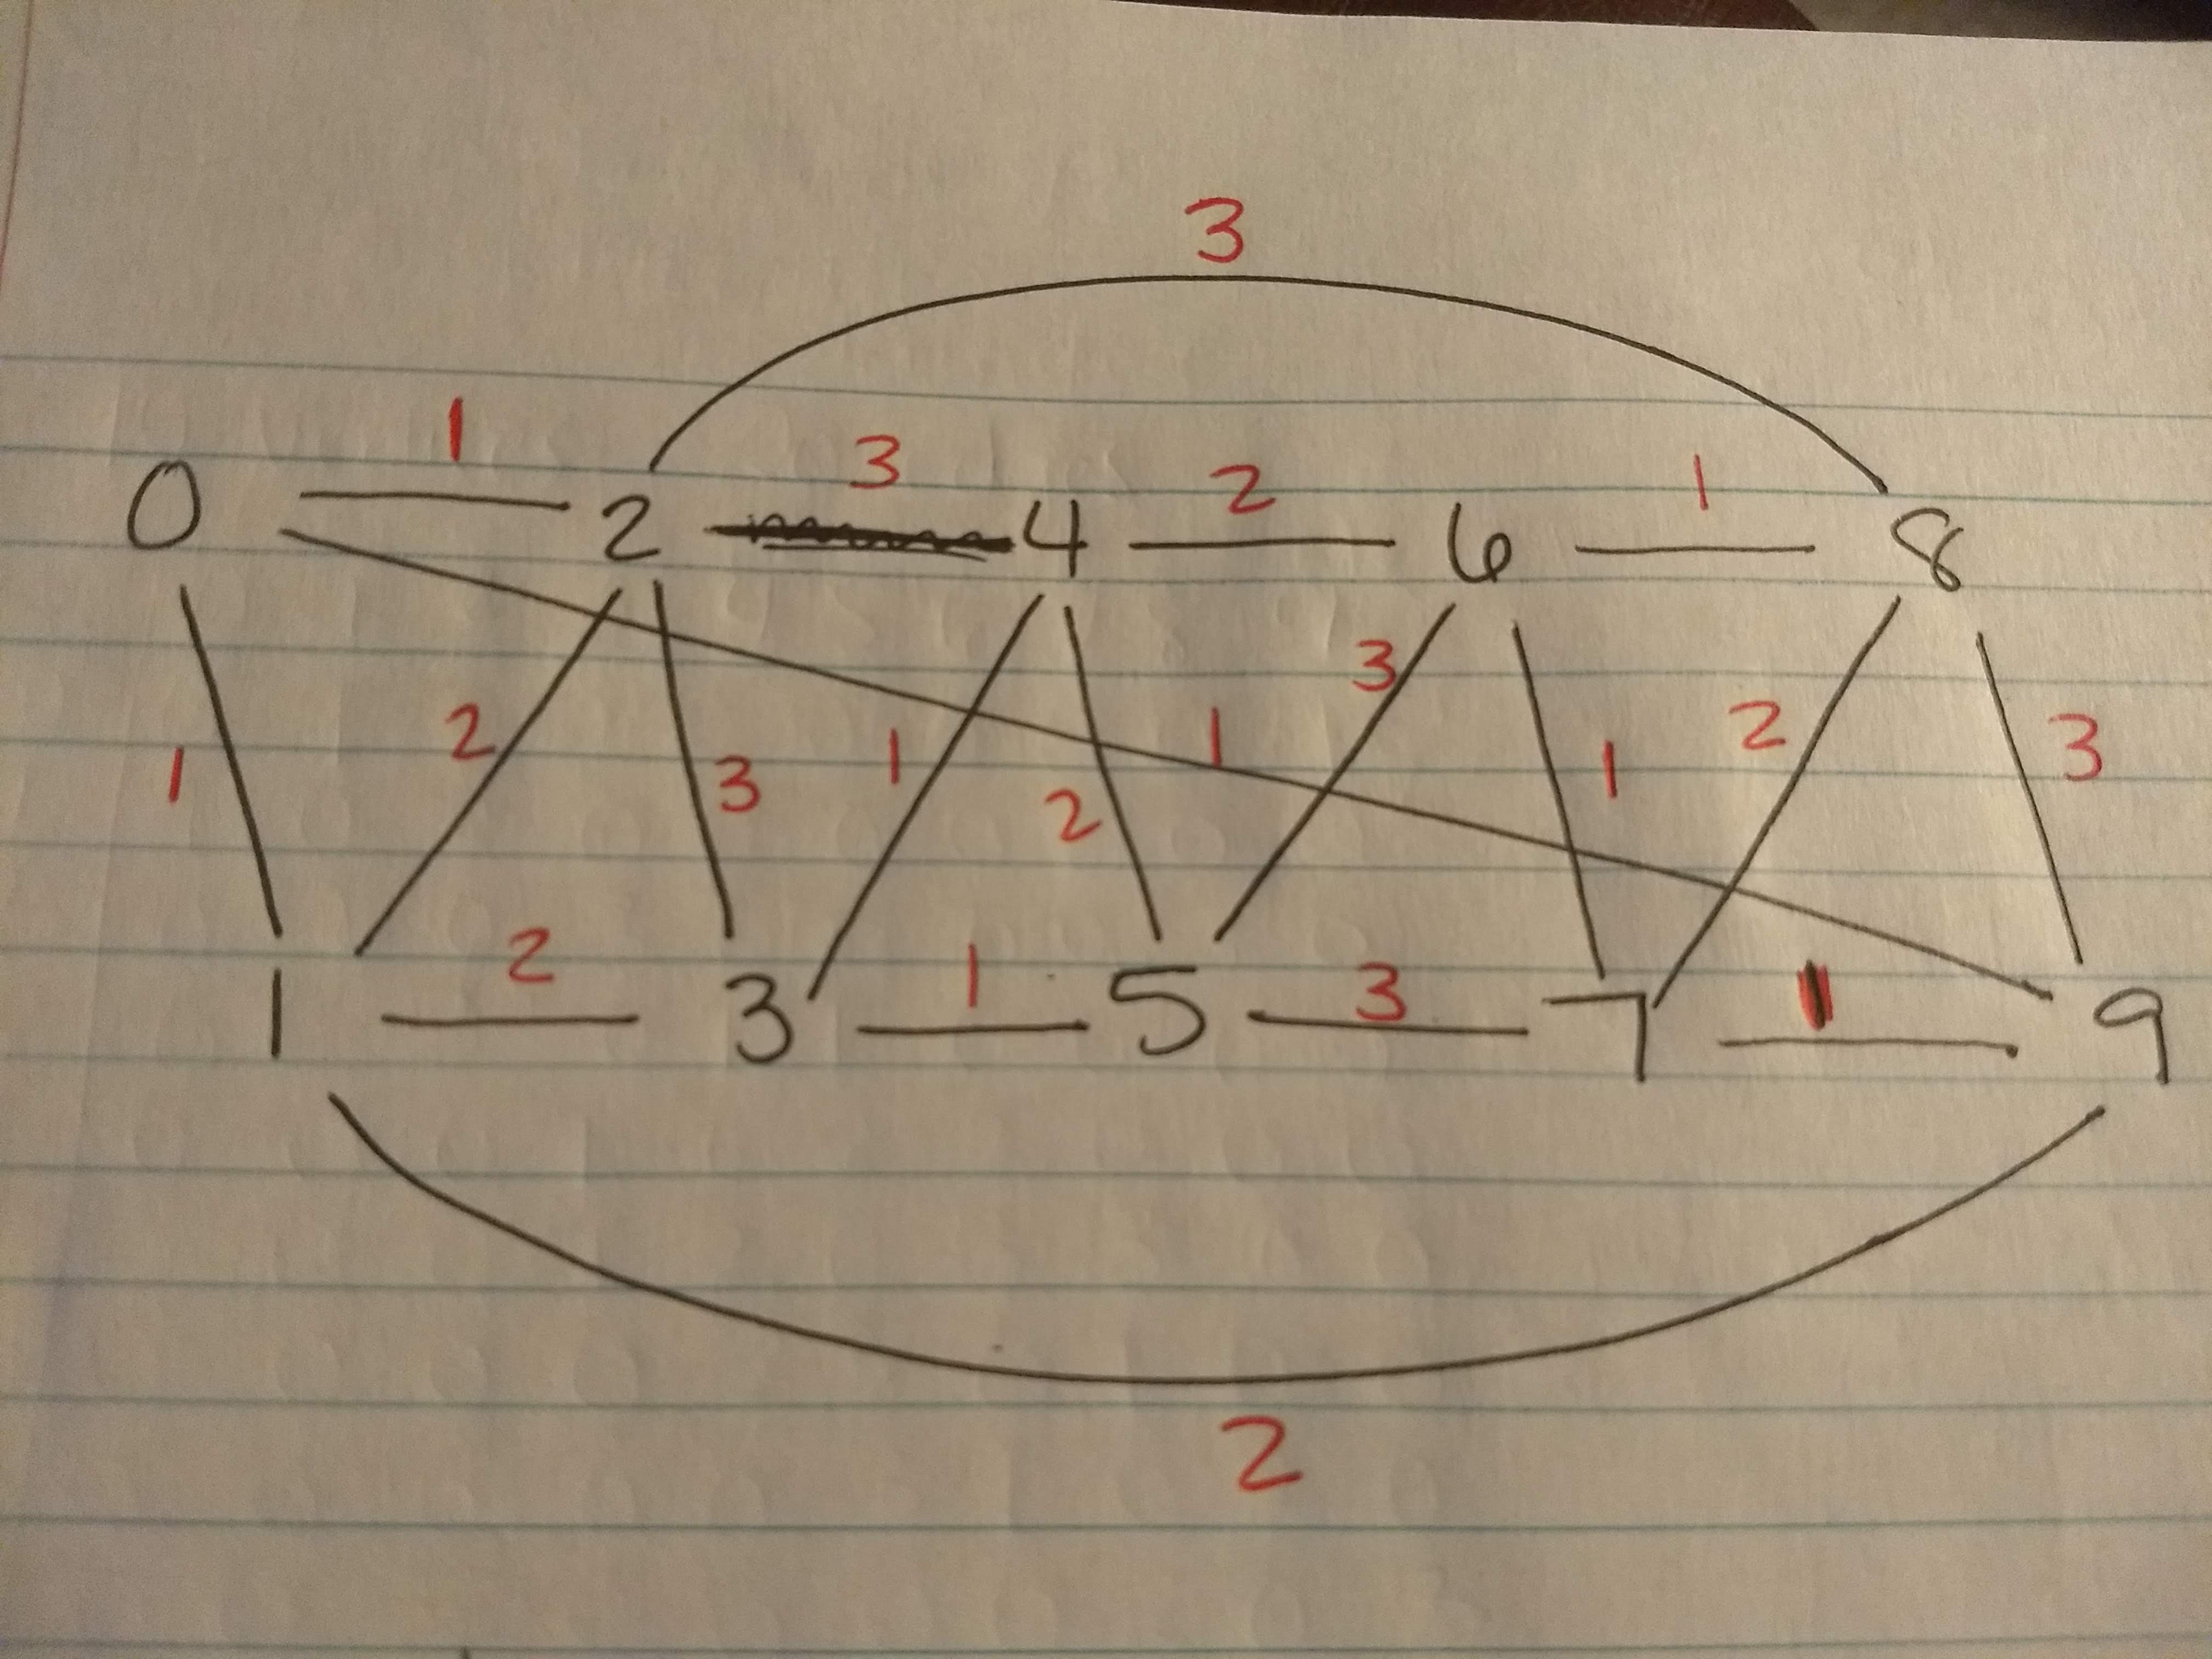 3
1 3 2 1
0 2 4 6 8
3
2 1 1 2 3
1 3 2 1
2 1 3 1
1 3 5 7 9
2